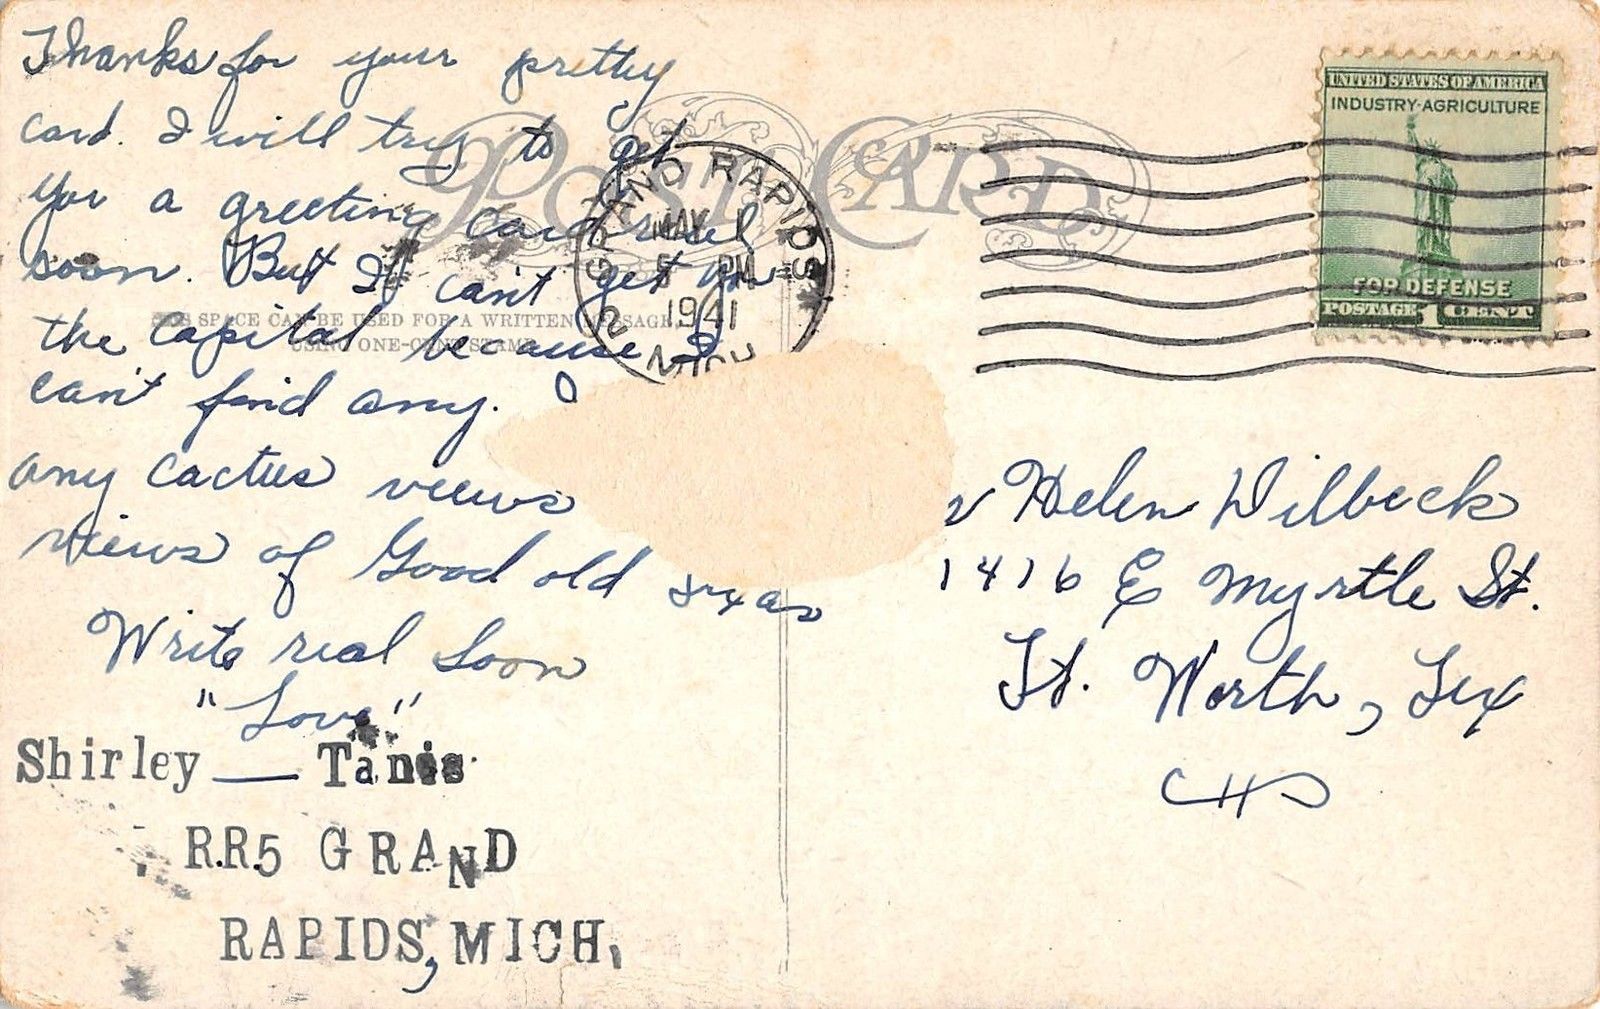 Thanks for your pretty
card. I will try to get
you a greeting card real
soon. But I can't get you
the Capital because I
can't find any.
any cactus views
views of Good old Texas
Write real Soon
"Love"
Shirley — Tanis
R.R.5 GRAND
RAPIDS, MICH.
POST CARD
THIS SPACE CAN BE USED FOR A WRITTEN MESSAGE,
USING ONE-CENT STAMP
GRAND RAPIDS
MAY 1
5 PM
1941
MICH
2
UNITED STATES OF AMERICA
INDUSTRY·AGRICULTURE
FOR DEFENSE
POSTAGE 1 CENT
Helen Dilbeck
1416 E Myrtle St.
Ft. Worth, Tex